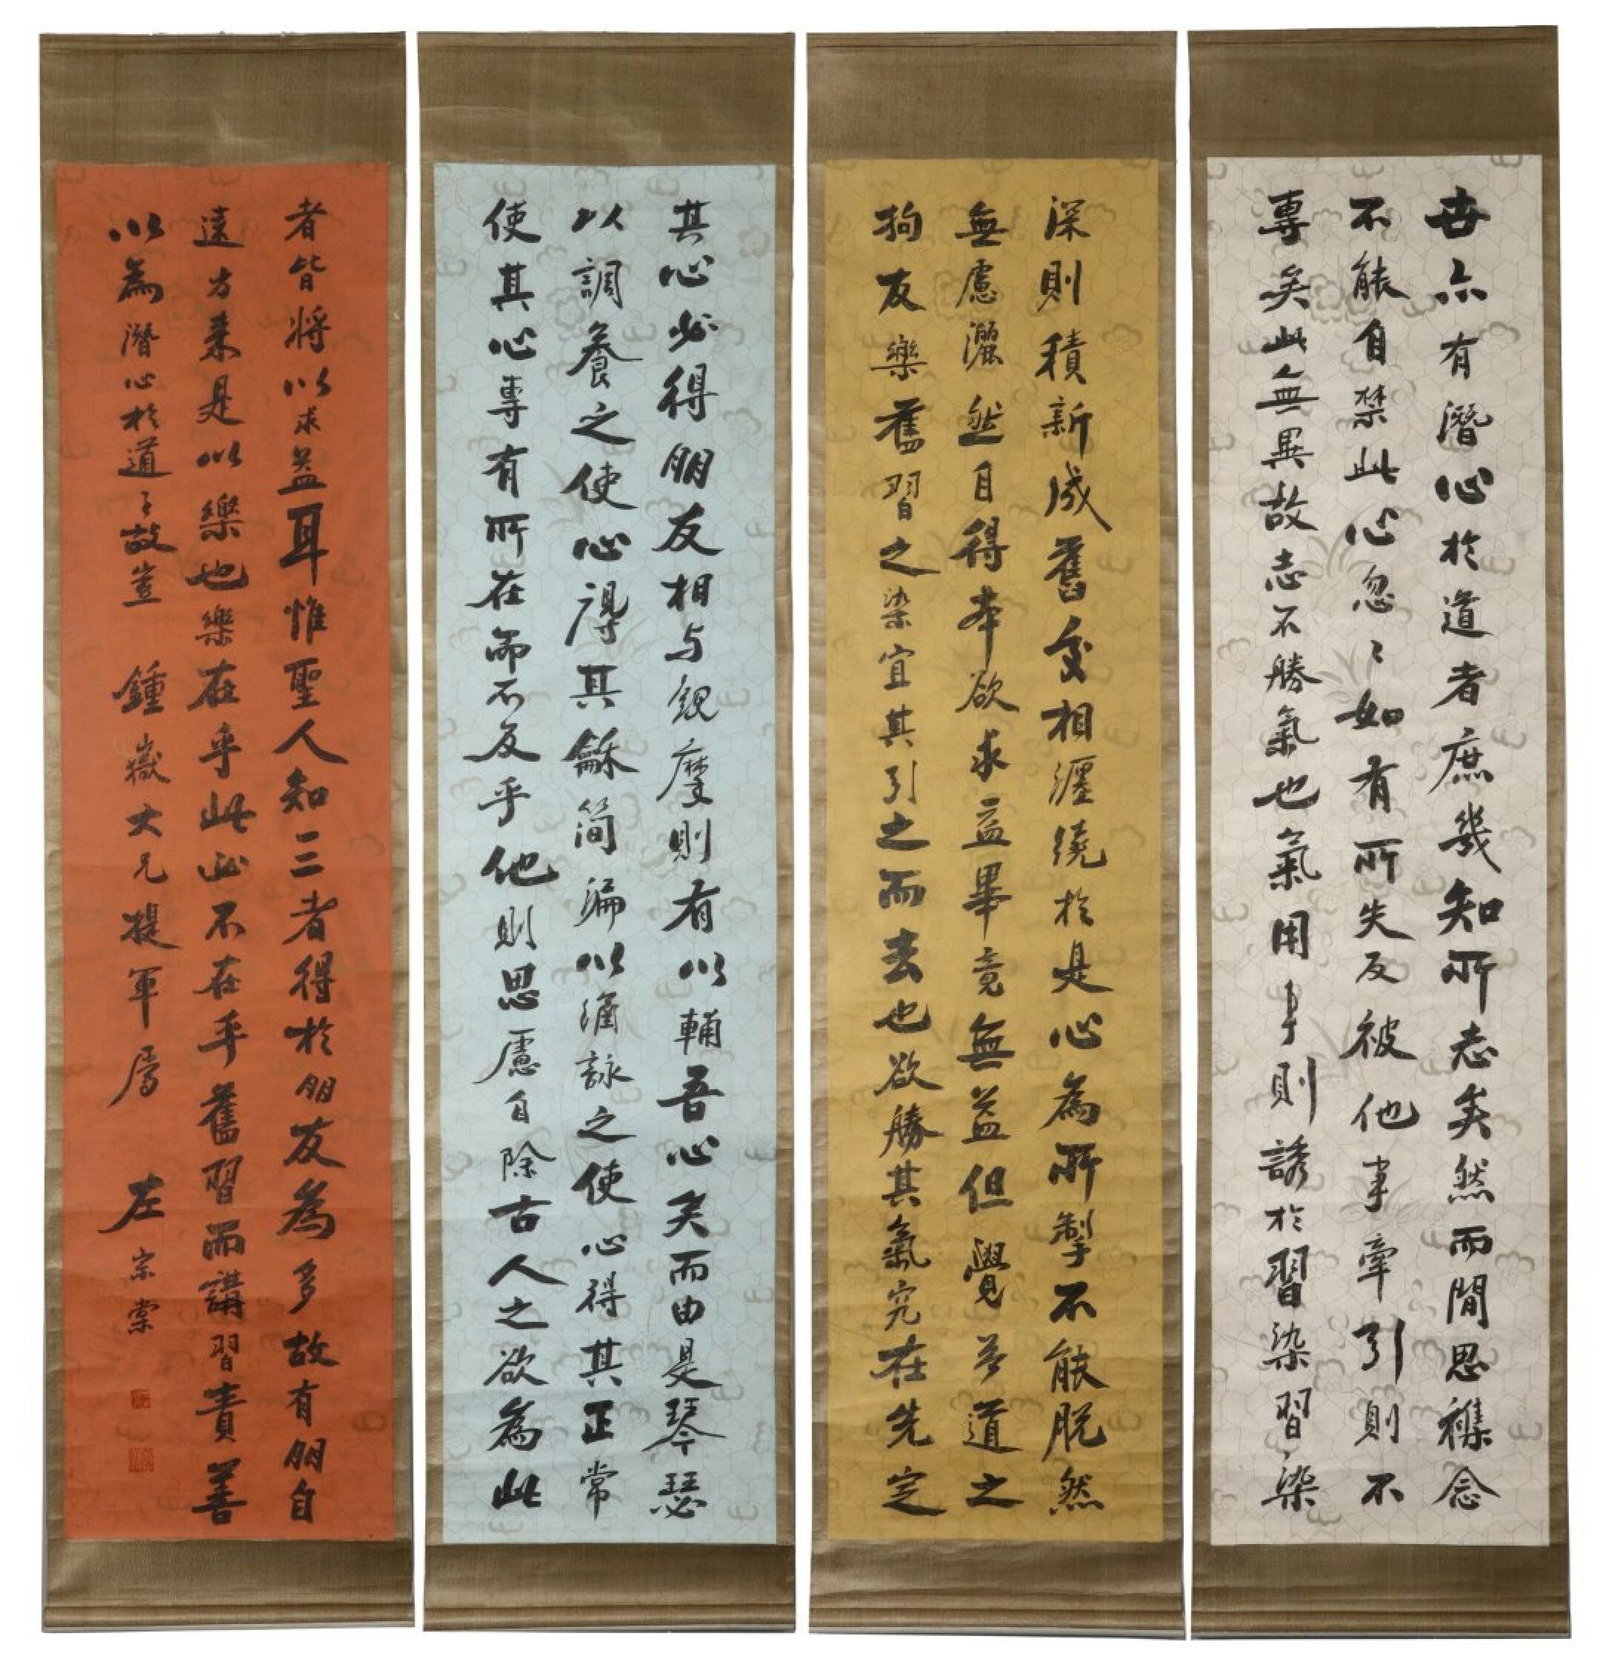 世亦有潛心於道者庶幾知所志矣然而閒思雜念
不能自禁此心忽〻如有所失反被他事牽引則不
專矣此無異故志不勝氣也氣用事則誘於習染習〻染
深則積新成舊交相纏繞於是心為所掣不能脫然
無慮灑然自得本欲求益畢竟無益但覺苦道之
拘友樂舊習之染宜其引之而去也欲勝其氣究在先定
其心必得朋友相与觀摩則有以輔吾心矣而由是琴瑟
以調養之使心得其龢簡編以諷詠之使心得其正常
使其心專有所在而不反乎他則思慮自除古人之欲為此
者皆將以求益耳惟聖人知三者得於朋友為多故有朋自
遠方來是以樂也樂在乎此必不在乎舊習而講習責善
以為潛心於道〻故豈 鍾嶽大兄提軍屬 左宗棠